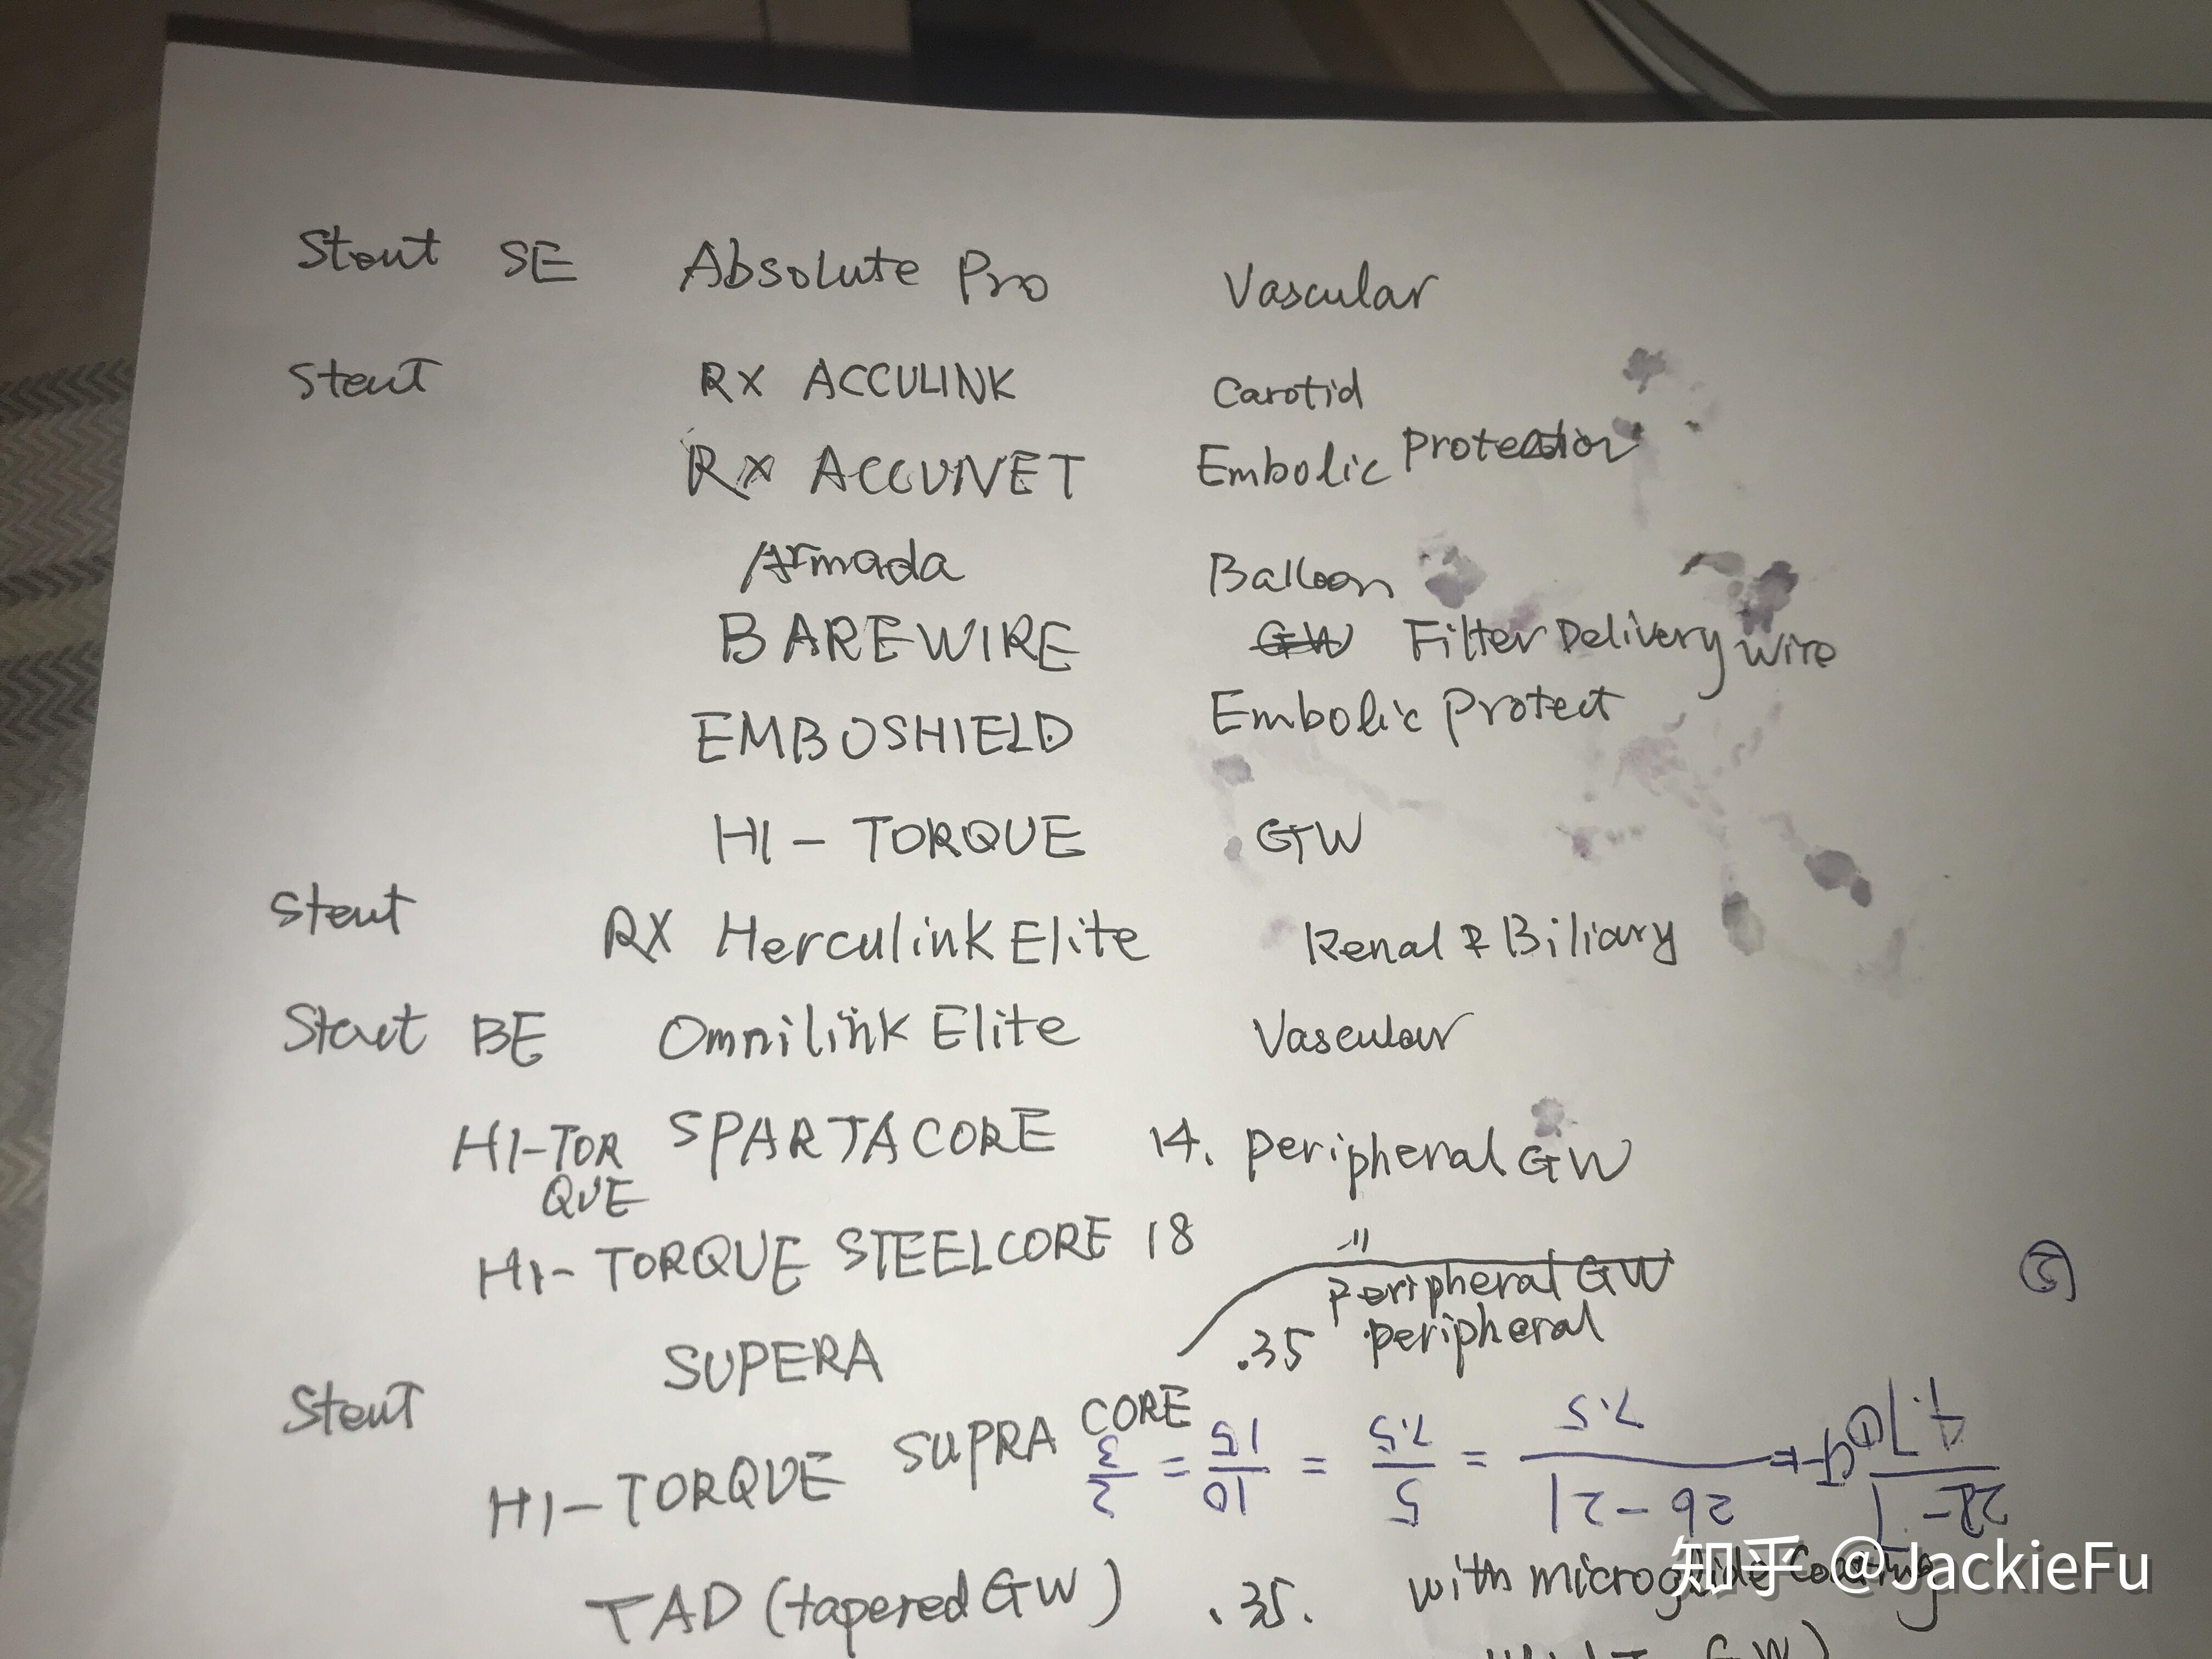 Stent SE Absolute Pro Vascular
Stent RX ACCULINK Carotid
RX ACCUNET Embolic Protection
Armada Balloon
BAREWIRE GW Filter Delivery Wire
EMBOSHIELD Embolic Protect
HI-TORQUE GW
Stent RX Herculink Elite Renal & Biliary
Stent BE Omnilink Elite Vascular
HI-TORQUE SPARTACORE 14. peripheral GW
HI-TORQUE STEELCORE 18 -11
Peripheral GW
Stent SUPERA .35 peripheral
HI-TORQUE SUPRA CORE
2/3 = 10/15 = 5/7.5 = 26-21/7.5
TAD (tapered GW) .35. with microglide coating
GW)
5
知乎 @JackieFu